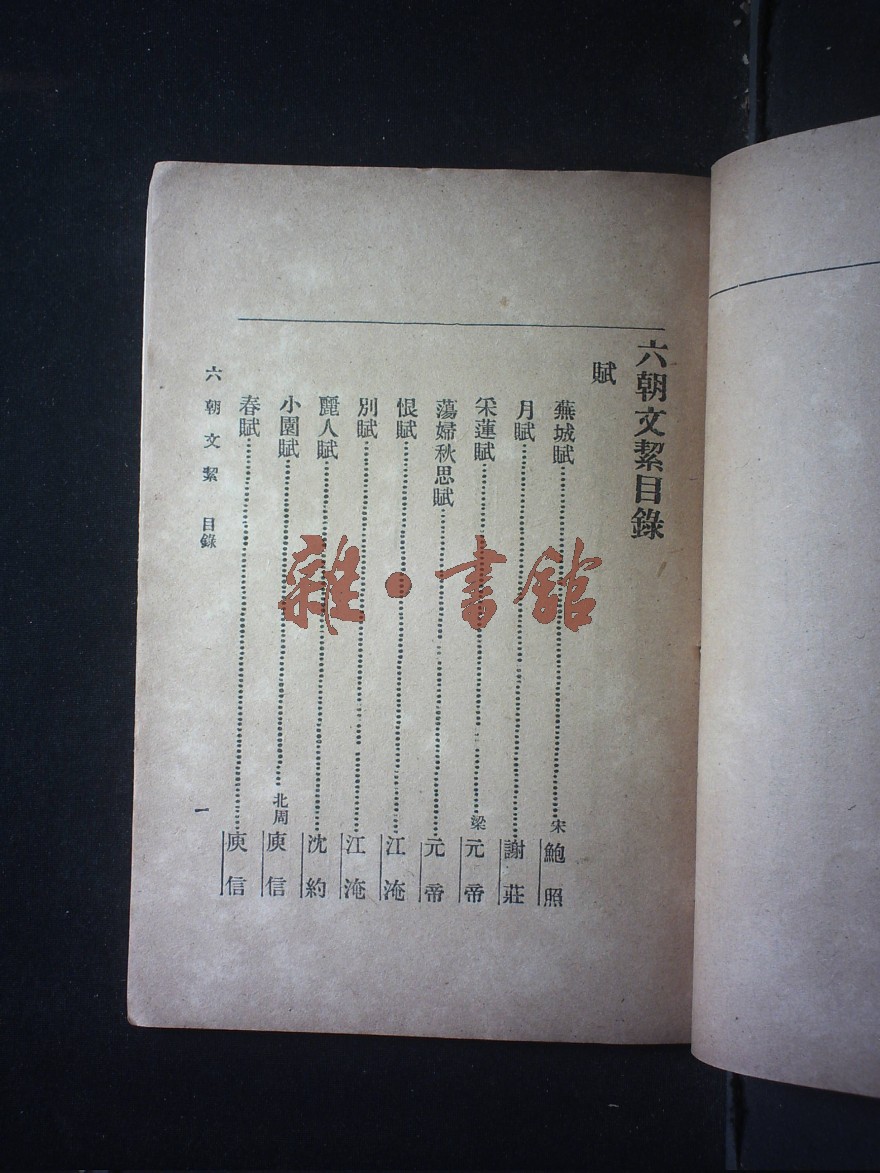 六朝文絜目錄
賦
蕪城賦……宋鮑照
月賦……謝莊
采蓮賦……梁元帝
蕩婦秋思賦……元帝
恨賦……江淹
別賦……江淹
麗人賦……沈約
小園賦……北周庾信
春賦……庾信
六朝文絜 目錄
一
雜·書館